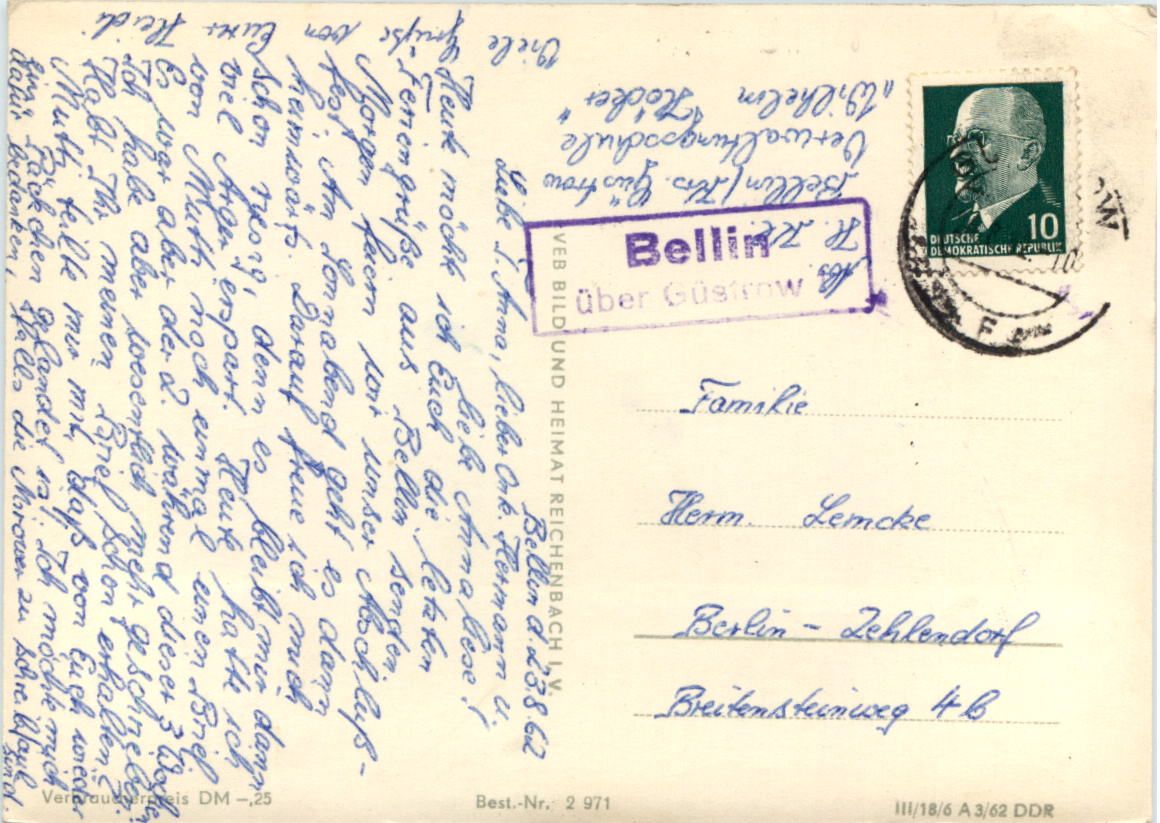 Bellin d. 23.8.62
Liebe T. Anna, lieber Onk. Hermann u.
liebe Annaliese!
Heute möchte ich Euch die letzten
Feriengrüße aus Bellin senden.
Morgen feiern wir unser Abschluß-
fest. Am Sonnabend geht es dann
heimwärts. Darauf freue ich mich
schon riesig, denn es bleibt mir dann
viel Ärger erspart. Heute hatte ich
von Mutti noch einmal einen Brief.
Es war aber der 2. während dieser 3 Wochen.
Ich habe aber wesentlich mehr geschrieben.
Habt Ihr meinen Brief schon erhalten?
Mutti teilte mir mit, daß von Euch wieder
ein Päckchen gelandet ist. Ich möchte mich
dafür bedanken, falls die Mirower zu schreibfaul
sind.
Viele Grüße von Eurer Heidi
Abs. H.
Bellin/Krs. Güstrow
Verwaltungsschule
„Wilhelm Höcker“
DEUTSCHE
DEMOKRATISCHE REPUBLIK
10
Bellin
über Güstrow
F
VEB BILD UND HEIMAT REICHENBACH I. V.
Familie
Herm. Lemcke
Berlin - Zehlendorf
Breitensteinweg 4b
Verbraucherpreis DM -,25
Best.-Nr. 2 971
III/18/6 A 3/62 DDR